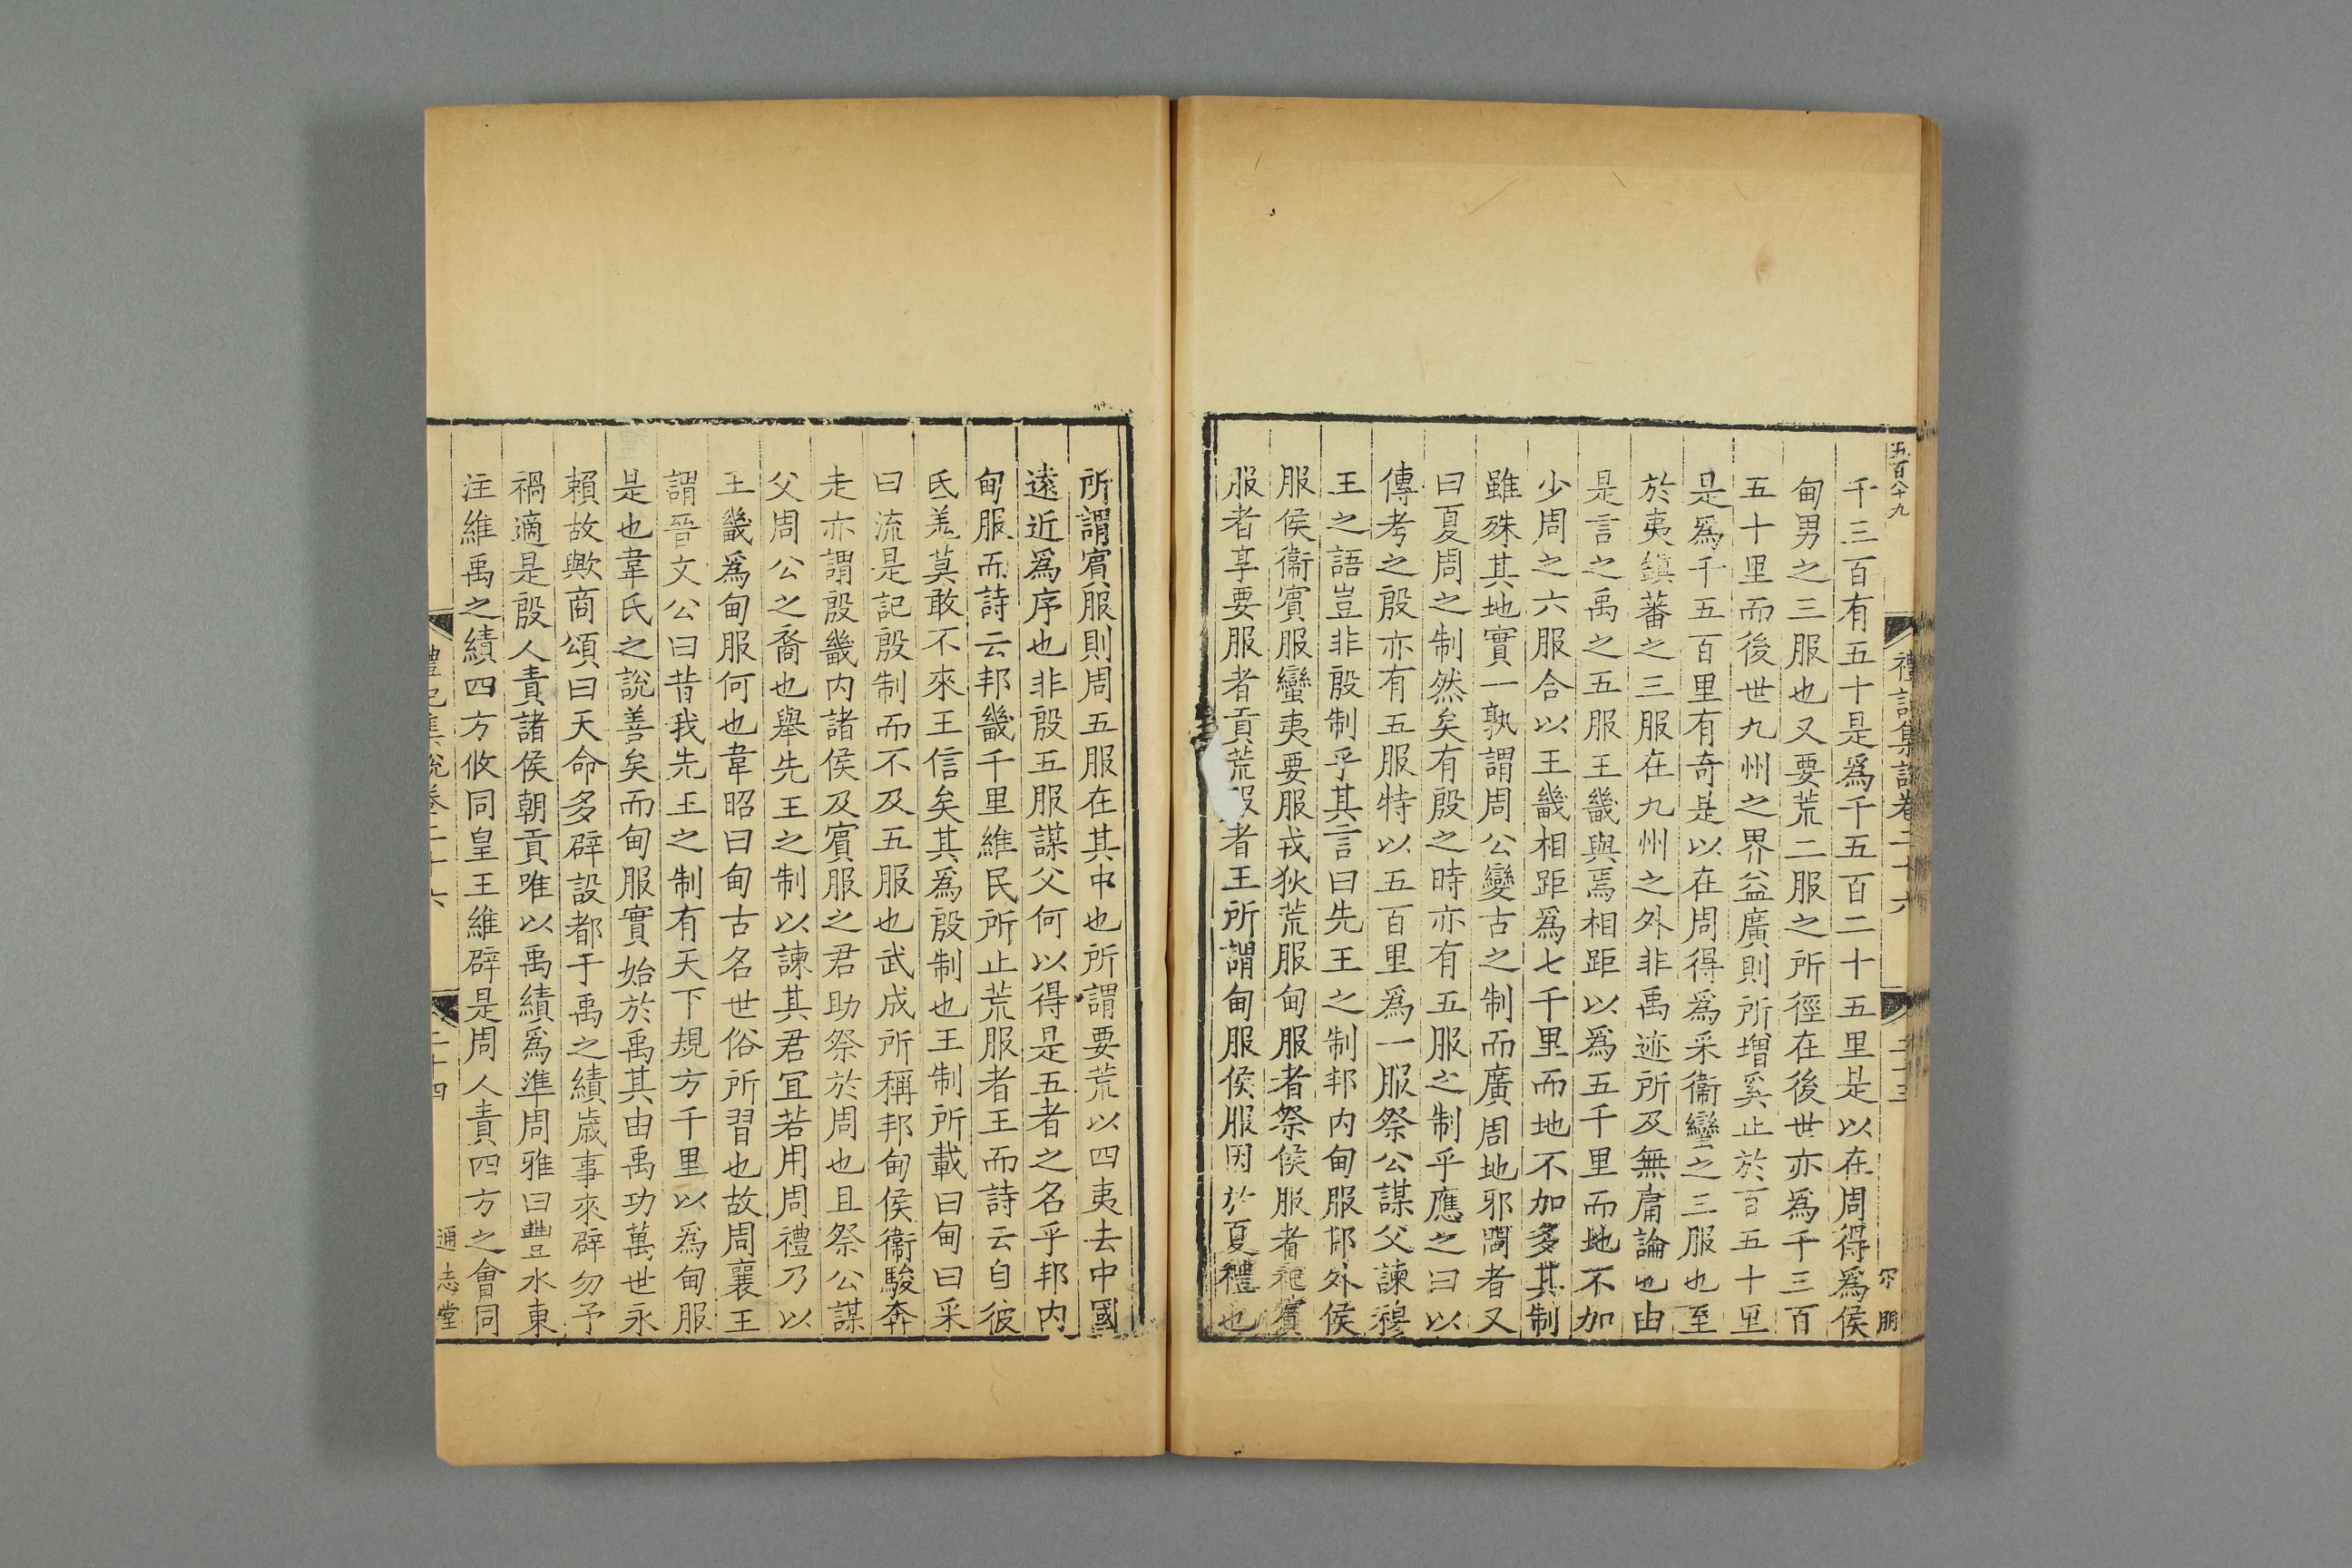 五百八十九
禮記集說卷二十六
二十三
朋
千三百有五十是爲千五百二十五里是以在周得爲侯
甸男之三服也又要荒二服之所徑在後世亦爲千三百
五十里而後世九州之界益廣則所增奚止於百五十里
是爲千五百里有奇是以在周得爲采衞蠻之三服也至
於夷鎮蕃之三服在九州之外非禹迹所及無庸論也由
是言之禹之五服王畿與焉相距以爲五千里而地不加
少周之六服合以王畿相距爲七千里而地不加多其制
雖殊其地實一孰謂周公變古之制而廣周地邪聞者又
曰夏周之制然矣有殷之時亦有五服之制乎應之曰以
傳考之殷亦有五服特以五百里爲一服祭公謀父諫穆
王之語豈非殷制乎其言曰先王之制邦内甸服邦外侯
服侯衞賓服蠻夷要服戎狄荒服甸服者祭侯服者祀賓
服者享要服者貢荒服者王所謂甸服侯服因於夏禮也
所謂賓服則周五服在其中也所謂要荒以四夷去中國
遠近爲序也非殷五服謀父何以得是五者之名乎邦内
甸服而詩云邦畿千里維民所止荒服者王而詩云自彼
氐羌莫敢不來王信矣其爲殷制也王制所載曰甸曰采
曰流是記殷制而不及五服也武成所稱邦甸侯衞駿奔
走亦謂殷畿内諸侯及賓服之君助祭於周也且祭公謀
父周公之裔也舉先王之制以諫其君宜若用周禮乃以
王畿爲甸服何也韋昭曰甸古名世俗所習也故周襄王
謂晉文公曰昔我先王之制有天下規方千里以爲甸服
是也韋氏之說善矣而甸服實始於禹其由禹功萬世永
賴故歟商頌曰天命多辟設都于禹之績歲事來辟勿予
禍適是殷人責諸侯朝貢唯以禹績爲準周雅曰豐水東
注維禹之績四方攸同皇王維辟是周人責四方之會同
禮記集說卷二十六
二十四
通志堂